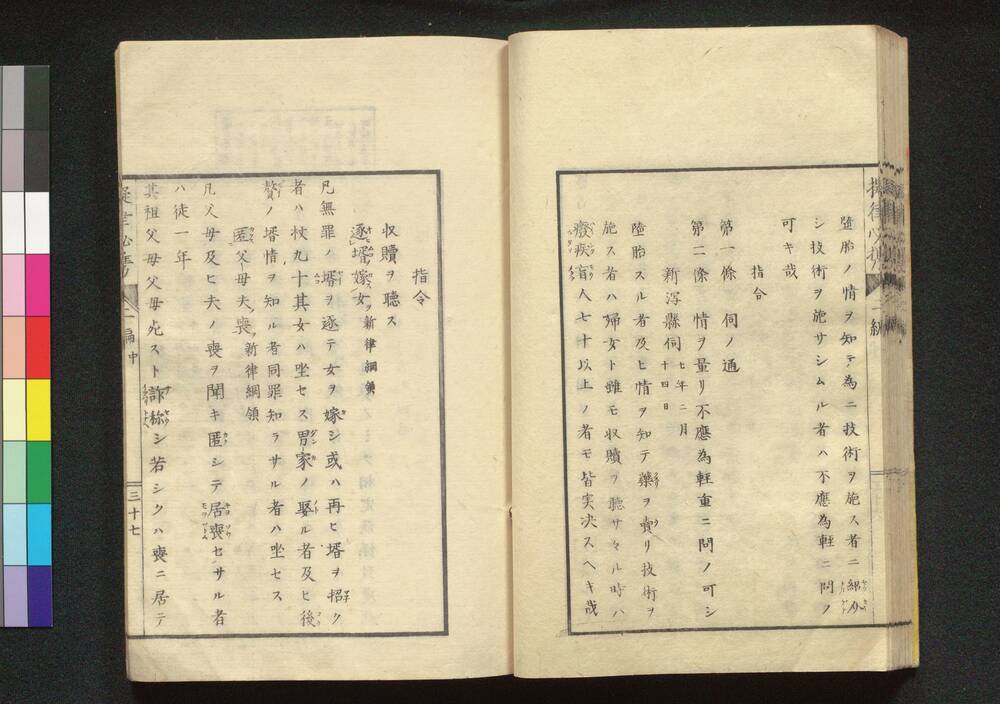 墮胎ノ情ヲ知テ為ニ技術ヲ施ス者ニ紹介
シ技術ヲ施サシムル者ハ不應為軽ニ問ノ
可キ哉
指令
第一條 伺ノ通
第二條 情ヲ量リ不應為軽重ニ問ノ可シ
新潟縣伺 七年二月十四日
墮胎スル者及ヒ情ヲ知テ藥ヲ賣リ技術ヲ
施ス者ハ婦女ト雖モ収贖ヲ聴サヽル時ハ
癈疾盲人七十以上ノ者モ皆実决スヘキ哉
指令
収贖ヲ聴ス
逐壻嫁女 新律綱領
凡無罪ノ壻ヲ逐テ女ヲ嫁シ或ハ再ヒ壻ヲ招ク
者ハ杖九十其女ハ坐セス男家ノ娶ル者及ヒ後
贅ノ壻情ヲ知ル者同罪知ラサル者ハ坐セス
匿父母夫喪 新律綱領
凡父母及ヒ夫ノ喪ヲ聞キ匿シテ居喪セサル者
ハ徒一年
其祖父母父母死スト詐称シ若シクハ喪ニ居テ
二編中
三十七